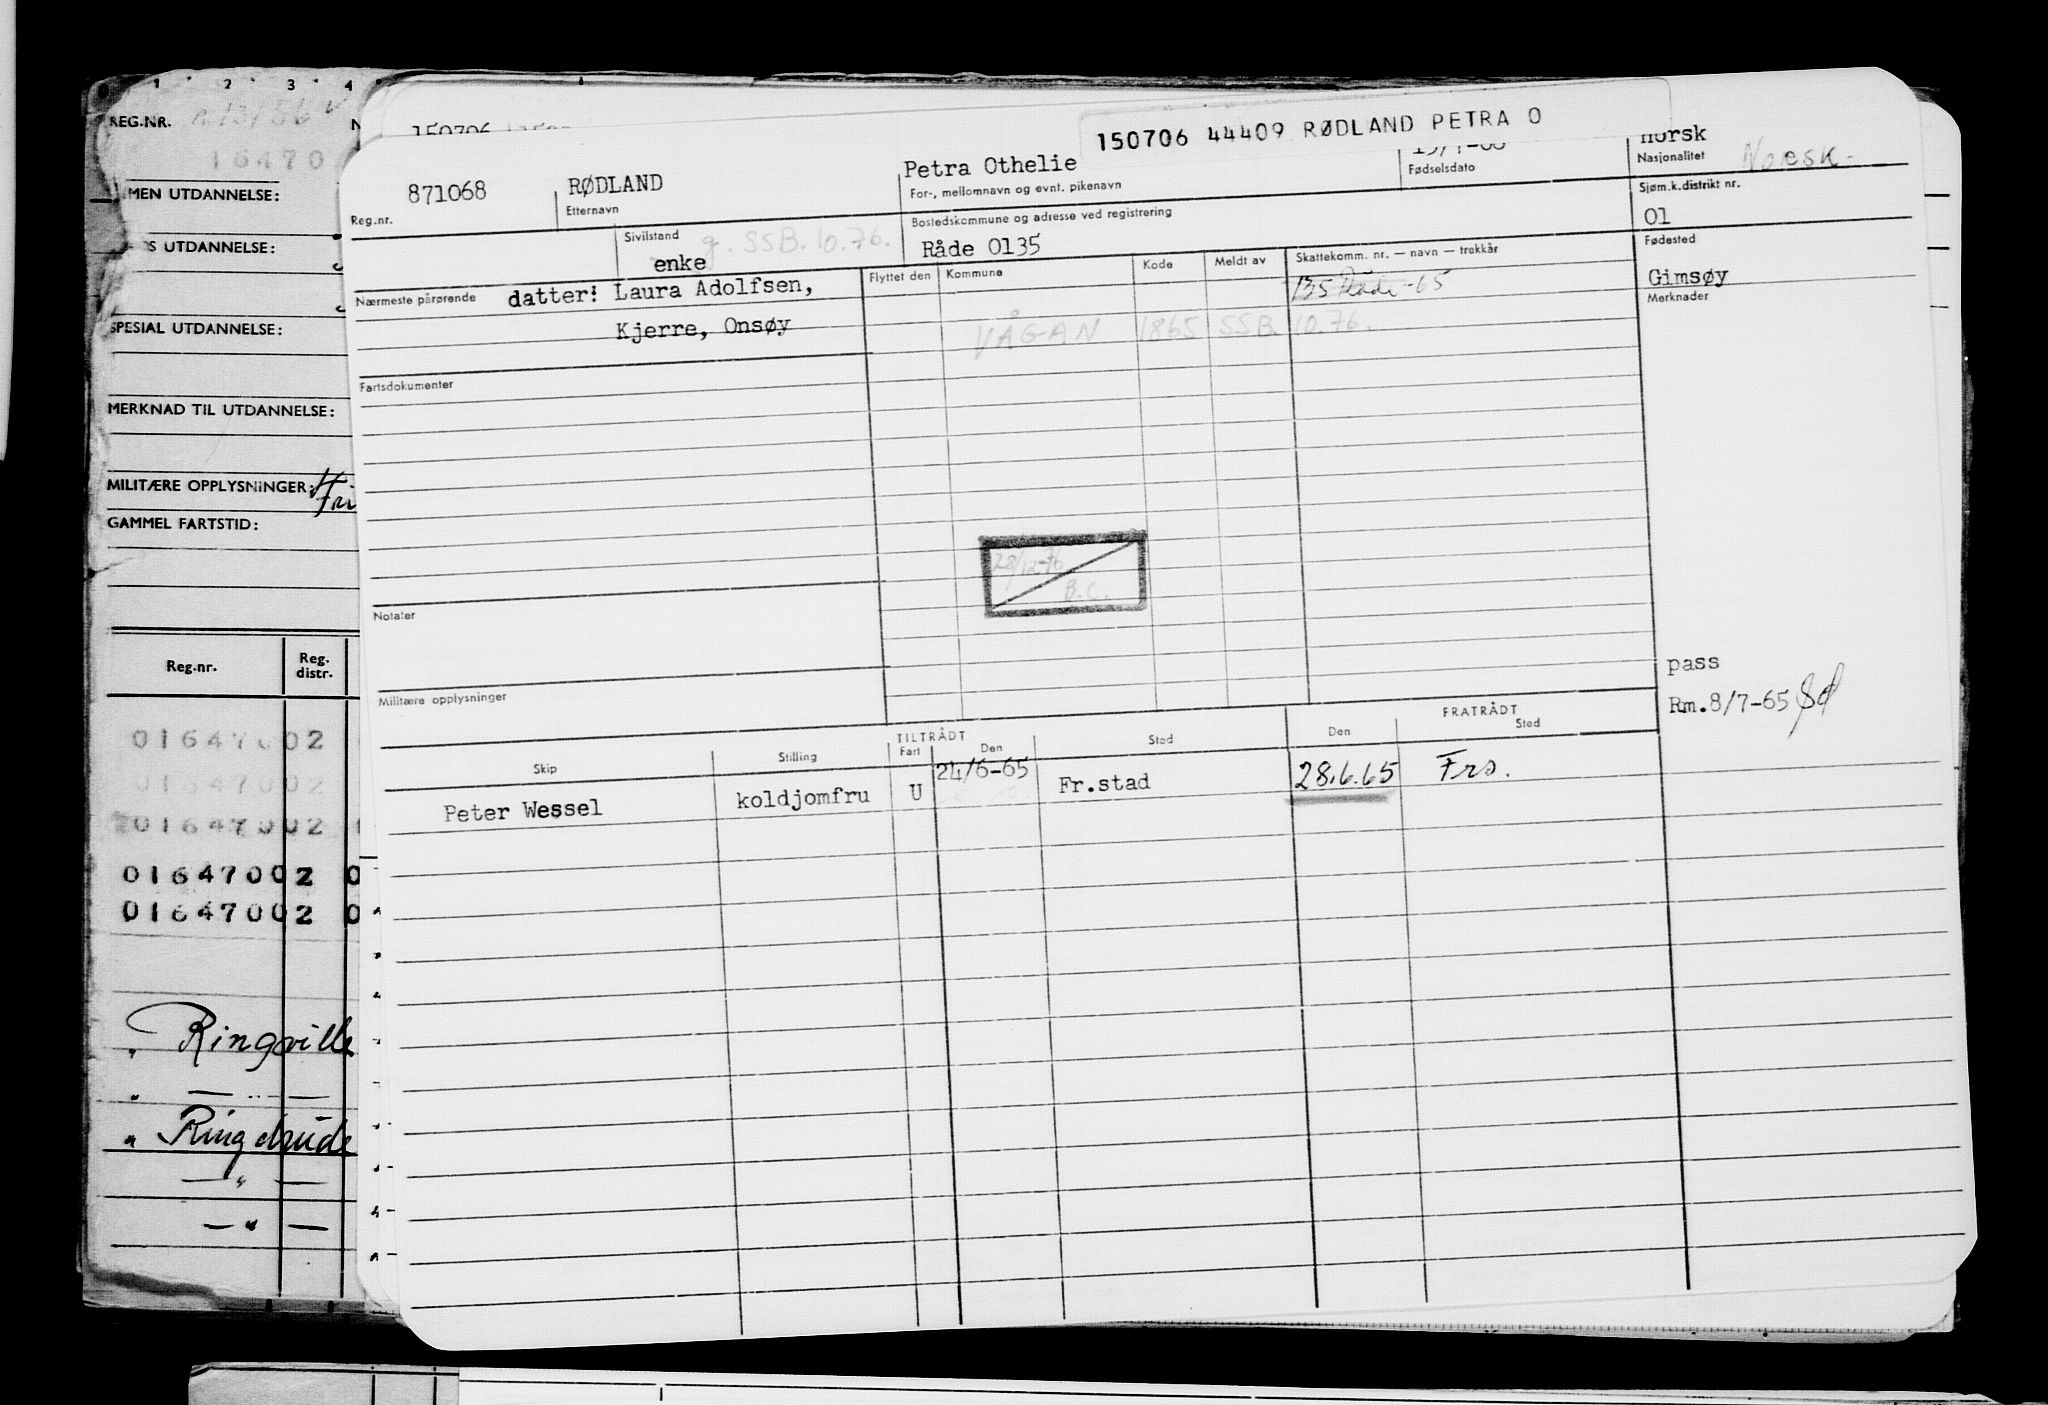 1 2 3 4
REG.NR.
16470
MEN UTDANNELSE:
S UTDANNELSE:
SPESIAL UTDANNELSE:
MERKNAD TIL UTDANNELSE:
MILITÆRE OPPLYSNINGER: Fri
GAMMEL FARTSTID:
Reg-nr. Reg. distr.
01647002
01647002
01647002
01647002 0
01647002 0
" Ringville
" — " —
" Ringdrude
— " —
— " —
150706
150706 44409 RØDLAND PETRA O
871068 RØDLAND Petra Othelie norsk
Reg.nr. Etternavn For-, mellomnavn og evnt. pikenavn Fødselsdato Nasjonalitet Norsk
Sivilstand g. SSB. 10.76. Bostedskommune og adresse ved registrering Sjøm.k.distrikt nr.
enke Råde 0135 01
Nærmeste pårørende datter: Laura Adolfsen, Flyttet den Kommune Kode Meldt av Skattekomm. nr. — navn — trekkår Fødested
135 Råde -65 Gimsøy
Kjerre, Onsøy VÅGAN 1865 SSB. 10.76. Merknader
Fartsdokumenter
28/12-76
B.C.
Notater
pass
Militære opplysninger Rm.8/7-65
TILTRÅDT FRATRÅDT
Skip Stilling Fart Den Sted Den Sted
Peter Wessel koldjomfru U 24/6-65 Fr.stad 28.6.65 Frs.